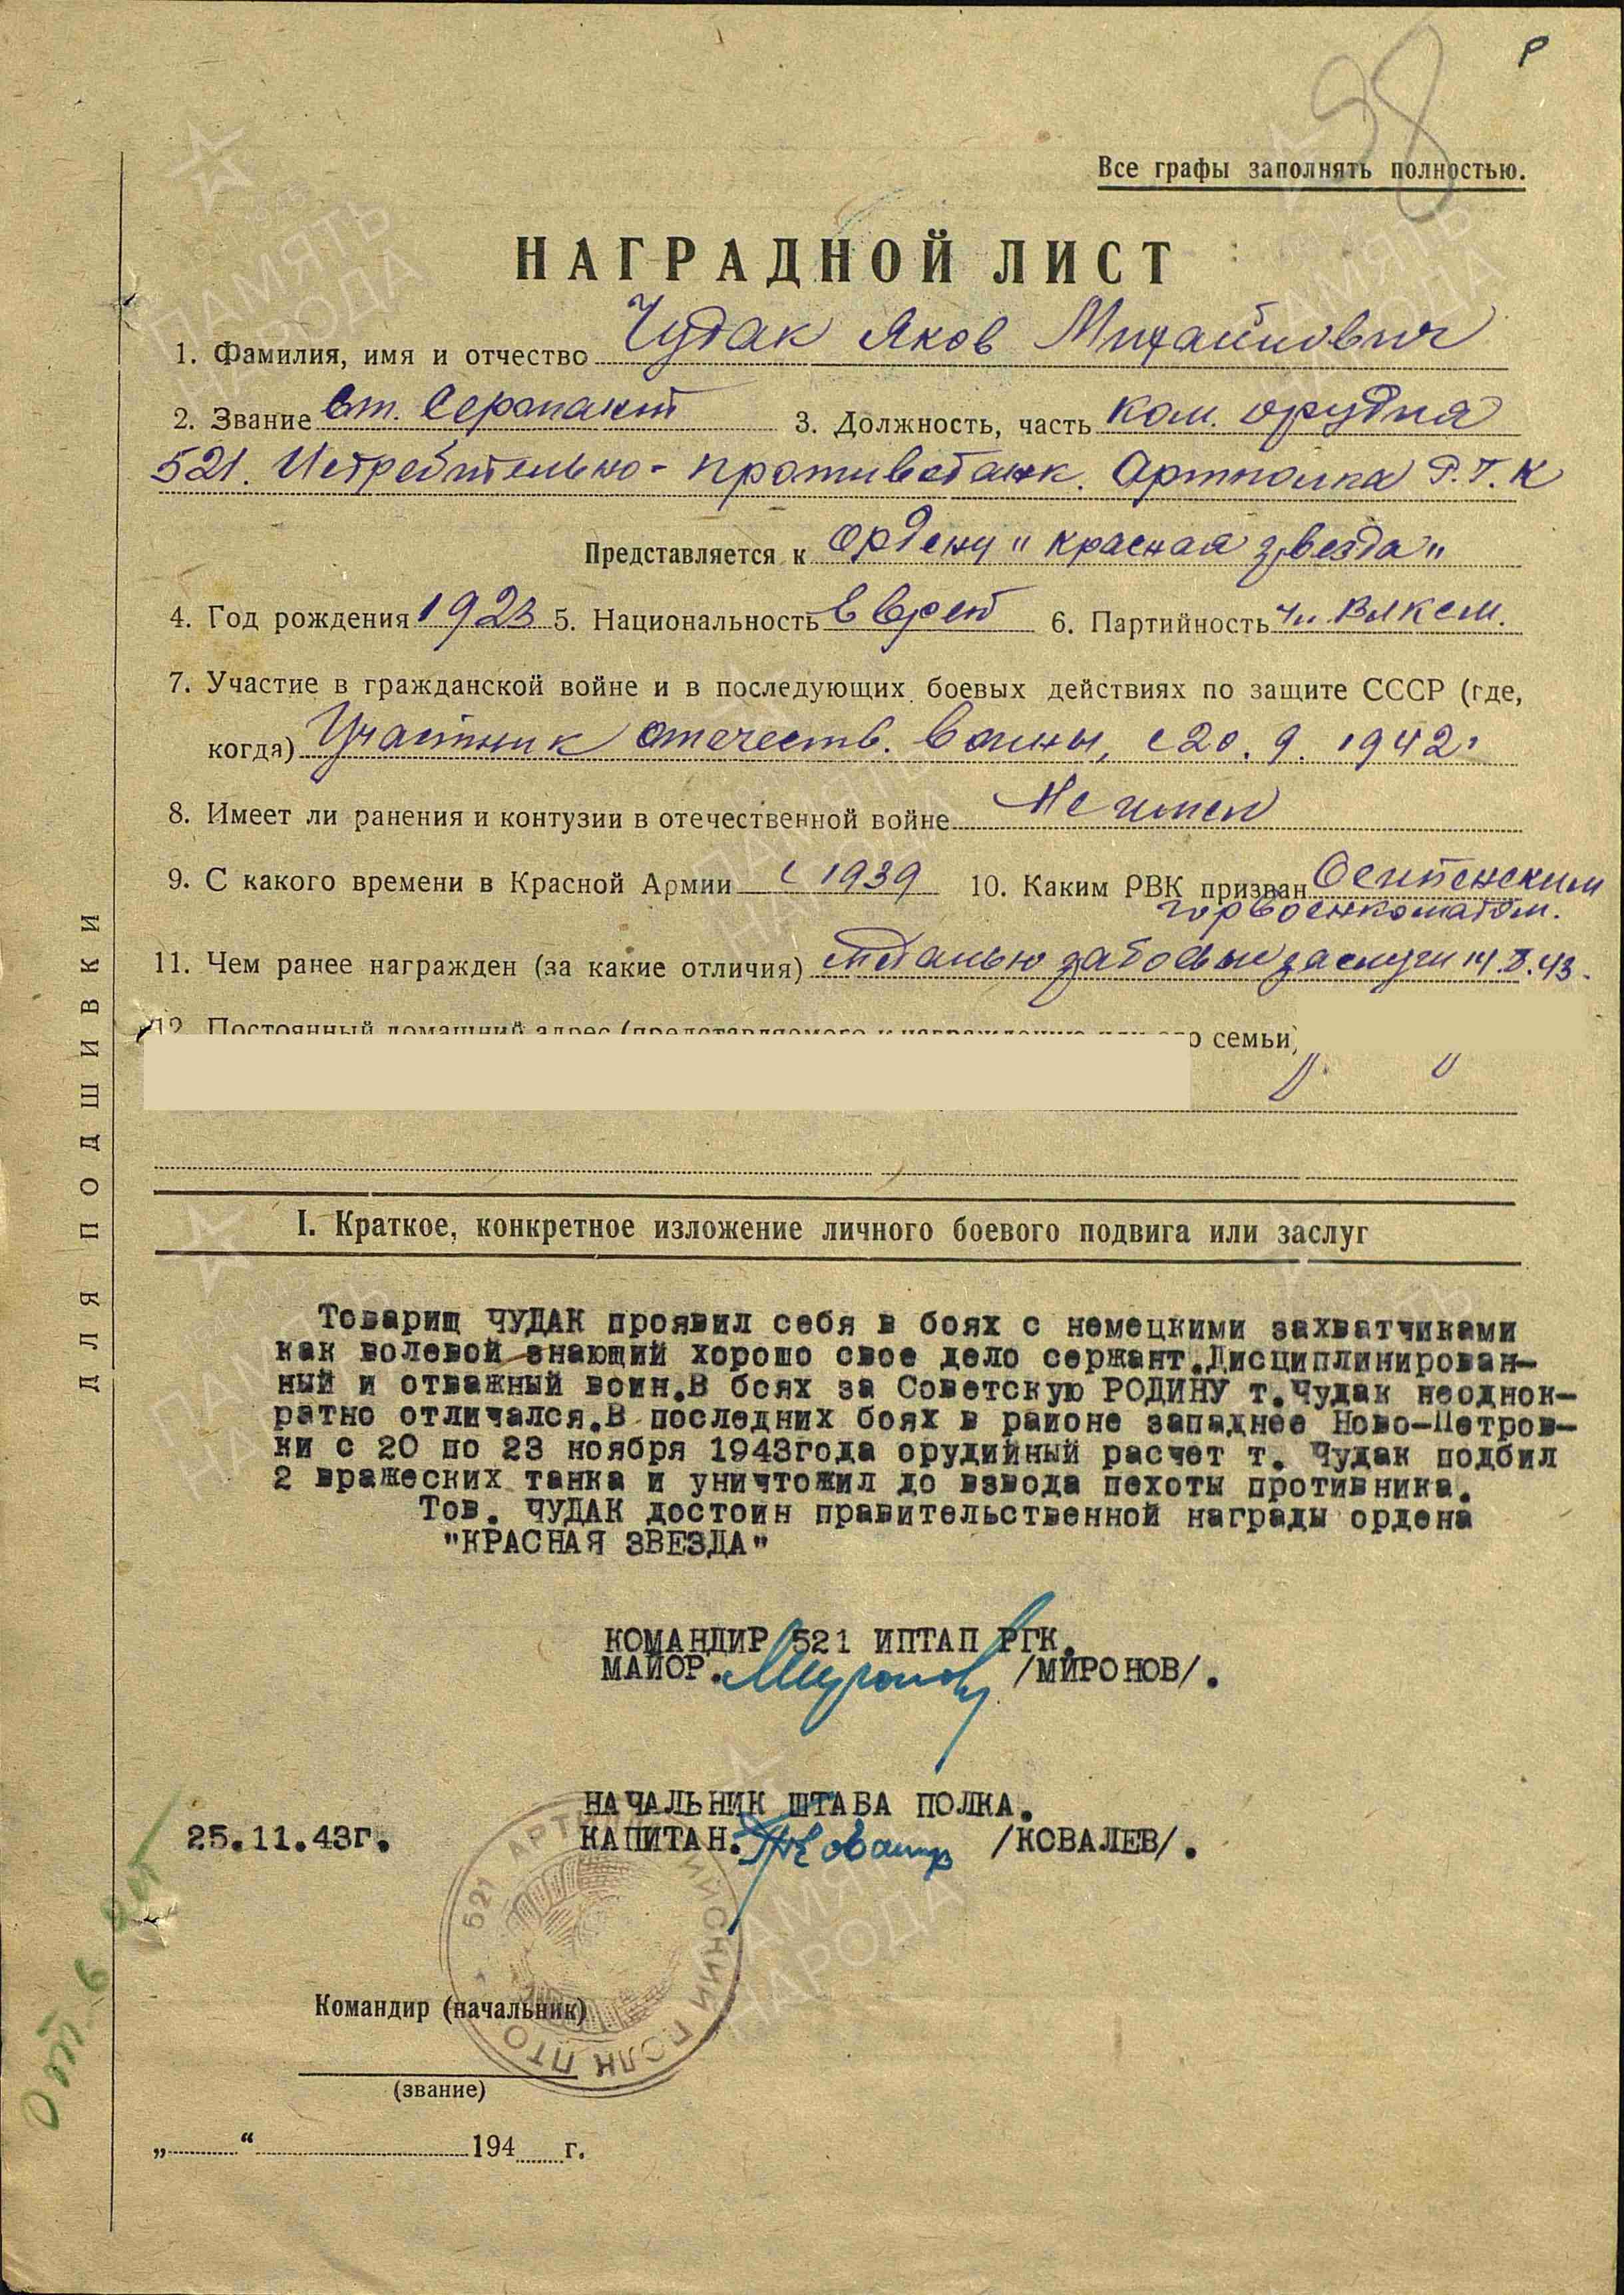 Р
98
Все графы заполнять полностью.
НАГРАДНОЙ ЛИСТ
1. Фамилия, имя и отчество Чудак Яков Михайлович
2. Звание Ст. Сержант 3. Должность, часть ком. орудия
521. Истребительно-противотанк. Артполка Р.Г.К
Представляется к ордену "красная звезда"
4. Год рождения 1923 5. Национальность Еврей 6. Партийность чл. ВЛКСМ.
7. Участие в гражданской войне и в последующих боевых действиях по защите СССР (где,
когда) Участник отечеств. войны, с 20.9.1942г
8. Имеет ли ранения и контузии в отечественной войне Не имел
9. С какого времени в Красной Армии с 1939 10. Каким РВК призван Осипенским
горвоенкоматом.
11. Чем ранее награжден (за какие отличия) медалью за боевые заслуги 14.8.43.
12. Постоянный домашний адрес (представляемого к награждению или его семьи)
I. Краткое, конкретное изложение личного боевого подвига или заслуг
Товарищ ЧУДАК проявил себя в боях с немецкими захватчиками
как волевой знающий хорошо свое дело сержант.Дисциплинирован-
ный и отважный воин.В боях за Советскую РОДИНУ т.Чудак неоднок-
ратно отличался.В последних боях в районе западнее Ново-Петров-
ки с 20 по 23 ноября 1943года орудийный расчет т. Чудак подбил
2 вражеских танка и уничтожил до взвода пехоты противника.
Тов. ЧУДАК достоин правительственной награды ордена
"КРАСНАЯ ЗВЕЗДА"
КОМАНДИР 521 ИПТАП РГК.
МАЙОР. Миронов /МИРОНОВ/.
НАЧАЛЬНИК ШТАБА ПОЛКА.
25.11.43г. КАПИТАН. /КОВАЛЕВ/.
521 АРТИЛЛЕРИЙСКИЙ ПОЛК ПТО
Командир (начальник)
(звание)
„ “ 194 г.
ДЛЯ ПОДШИВКИ
ПАМЯТЬ НАРОДА